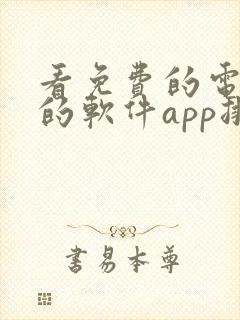 看免費的電
的軟件app排
書易本尊